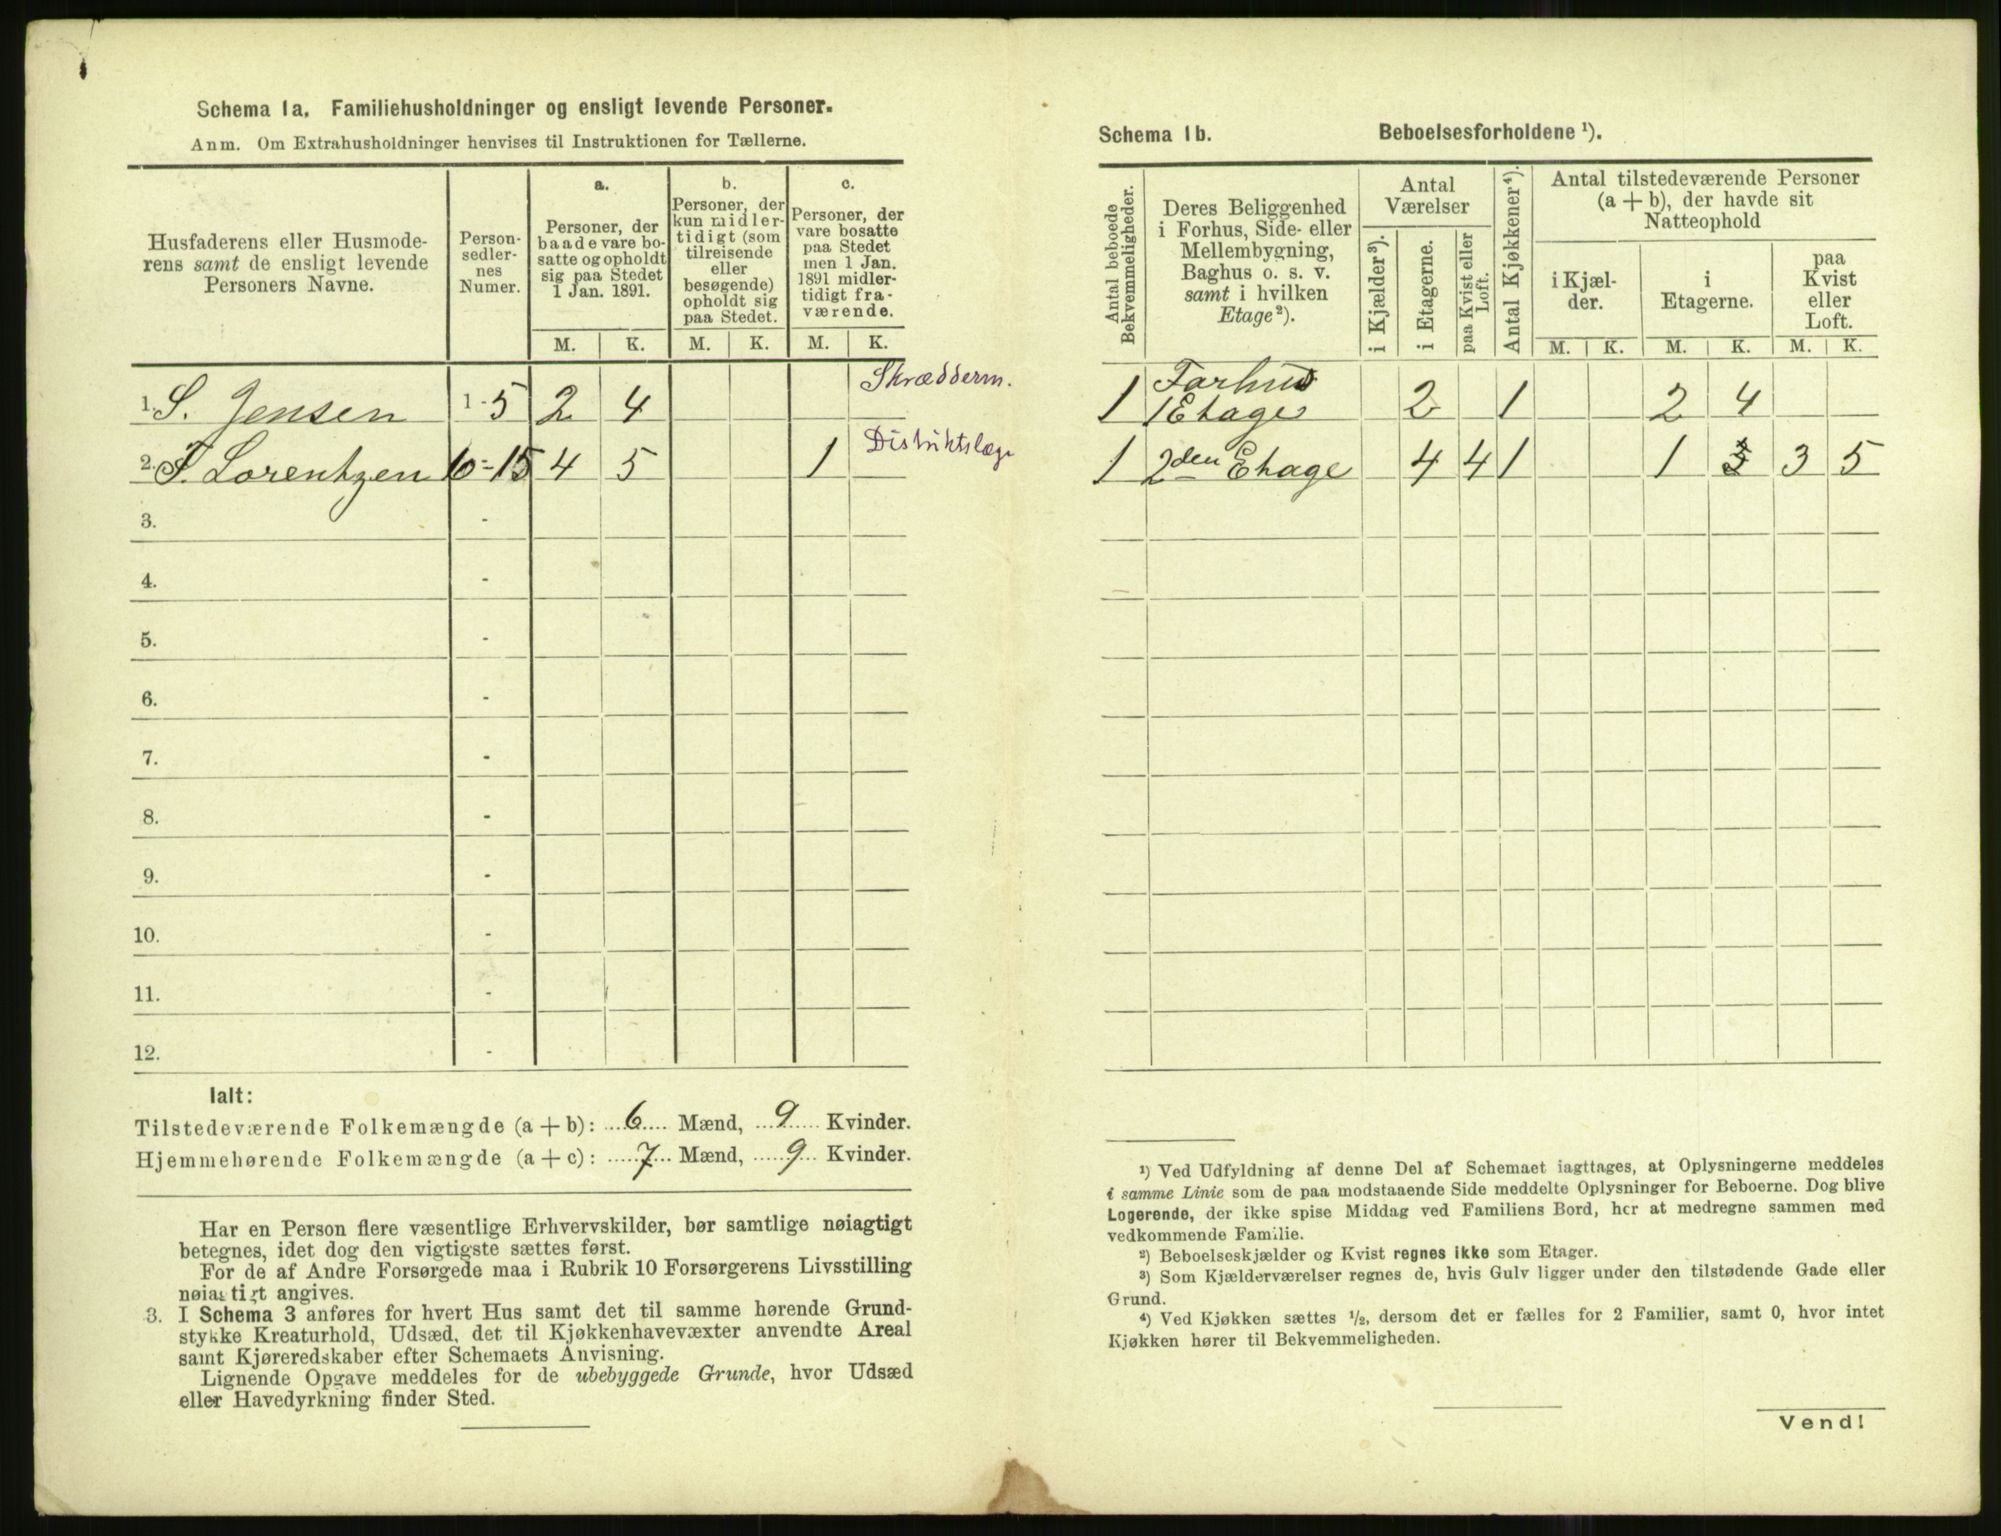 Schema 1a. Familiehusholdninger og ensligt levende Personer.
Anm. Om Extrahusholdninger henvises til Instruktionen for Tællerne.
Husfaderens eller Husmode-
rens samt de ensligt levende
Personers Navne.
Person-
sedler-
nes
Numer.
a.
Personer, der
baade vare bo-
satte og opholdt
sig paa Stedet
1 Jan. 1891.
b.
Personer, der
kun midler-
tidigt (som
tilreisende
eller
besøgende)
opholdt sig
paa Stedet.
c.
Personer, der
vare bosatte
paa Stedet
men 1 Jan.
1891 midler-
tidigt fra-
værende.
M. K. M. K. M. K.
1. S. Jensen 1-5 2 4 Skrædderm.
2. F. Lorentzen 6-15 4 5 1 Distriktslæge
3. -
4. -
5. -
6. -
7. -
8. -
9. -
10. -
11. -
12. -
Ialt:
Tilstedeværende Folkemængde (a + b): 6 Mænd, 9 Kvinder.
Hjemmehørende Folkemængde (a + c): 7 Mænd, 9 Kvinder.
Har en Person flere væsentlige Erhvervskilder, bør samtlige nøiagtigt
betegnes, idet dog den vigtigste sættes først.
For de af Andre Forsørgede maa i Rubrik 10 Forsørgerens Livsstilling
nøiagtigt angives.
3. I Schema 3 anføres for hvert Hus samt det til samme hørende Grund-
stykke Kreaturhold, Udsæd, det til Kjøkkenhavevæxter anvendte Areal
samt Kjøreredskaber efter Schemaets Anvisning.
Lignende Opgave meddeles for de ubebyggede Grunde, hvor Udsæd
eller Havedyrkning finder Sted.
Schema 1b. Beboelsesforholdene ¹).
Antal beboede
Bekvemmeligheder.
Deres Beliggenhed
i Forhus, Side- eller
Mellembygning,
Baghus o. s. v.
samt i hvilken
Etage²).
Antal
Værelser
i Kjælder³).
i Etagerne.
paa Kvist eller
Loft.
Antal Kjøkkener⁴).
Antal tilstedeværende Personer
(a + b), der havde sit
Natteophold
i Kjæl-
der.
i
Etagerne.
paa
Kvist
eller
Loft.
M. K. M. K. M. K.
1 Forhus
1 Etage 2 1 2 4
1 2den Etage 4 4 1 1 3 5
¹) Ved Udfyldning af denne Del af Schemaet iagttages, at Oplysningerne meddeles
i samme Linie som de paa modstaaende Side meddelte Oplysninger for Beboerne. Dog blive
Logerende, der ikke spise Middag ved Familiens Bord, her at medregne sammen med
vedkommende Familie.
²) Beboelseskjælder og Kvist regnes ikke som Etager.
³) Som Kjælderværelser regnes de, hvis Gulv ligger under den tilstødende Gade eller
Grund.
⁴) Ved Kjøkken sættes ½, dersom det er fælles for 2 Familier, samt 0, hvor intet
Kjøkken hører til Bekvemmeligheden.
Vend!